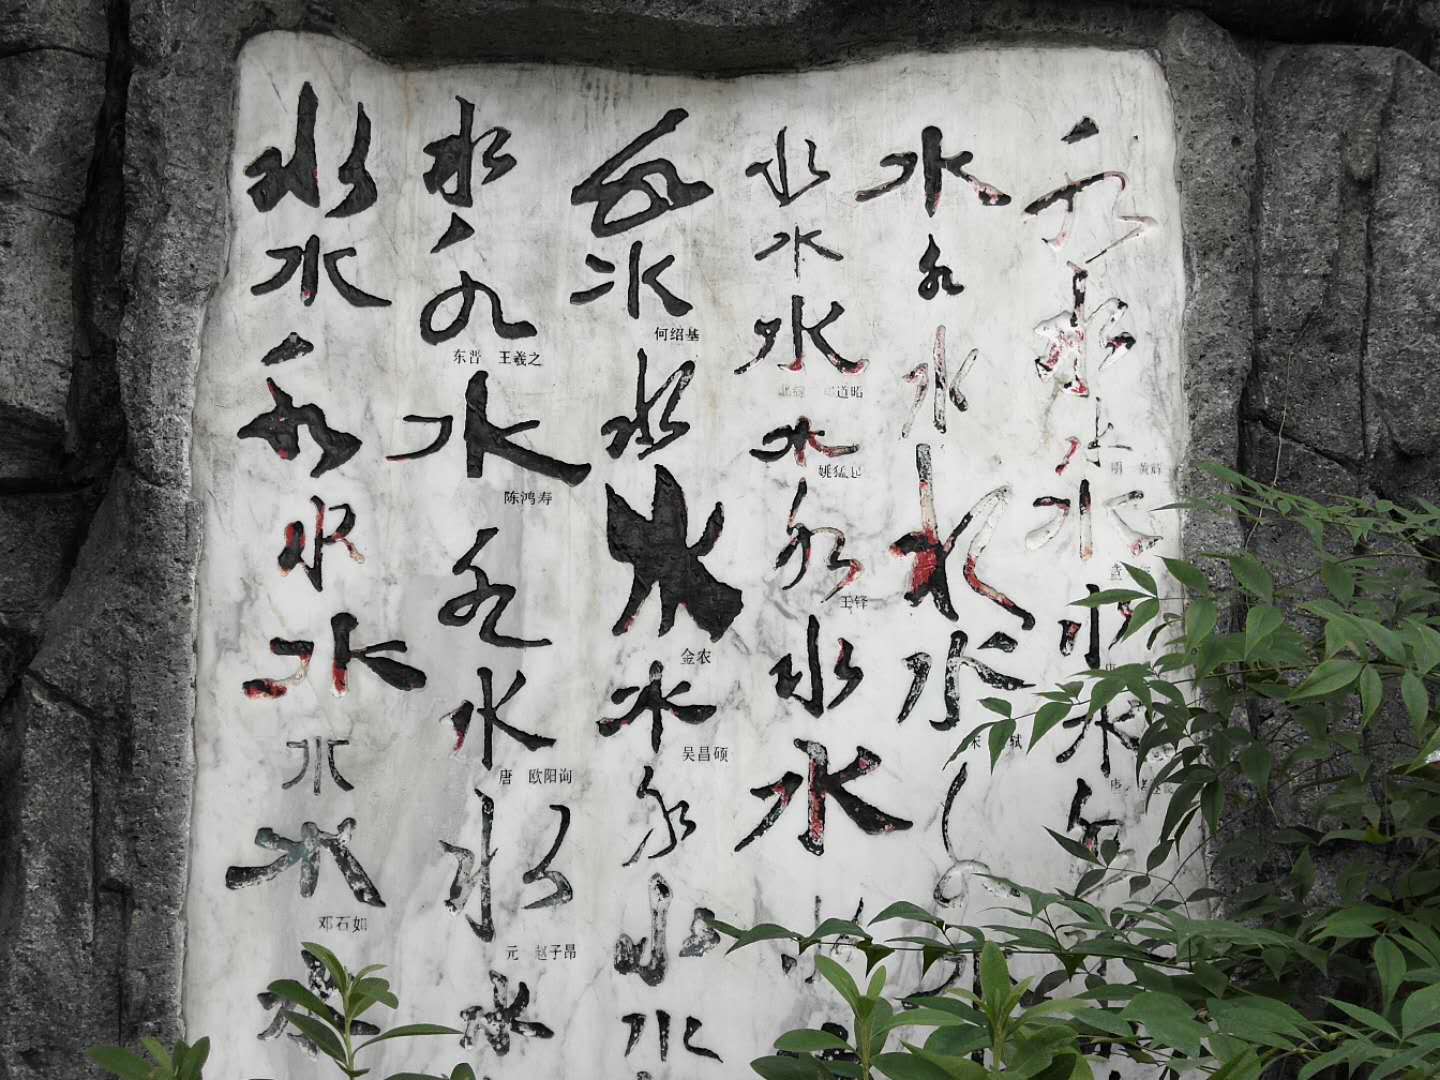 水
水
水
水
水
水
水
邓石如
水
水
水
东晋 王羲之
水
陈鸿寿
水
水
唐 欧阳询
水
元 赵子昂
水
水
水
何绍基
水
水
金农
水
吴昌硕
水
水
水
水
水
水
道昭
水
水
王铎
水
水
水
水
水
水
水
宋 轼
水
水
水
明 黄辉
水
水
唐
水
唐
水